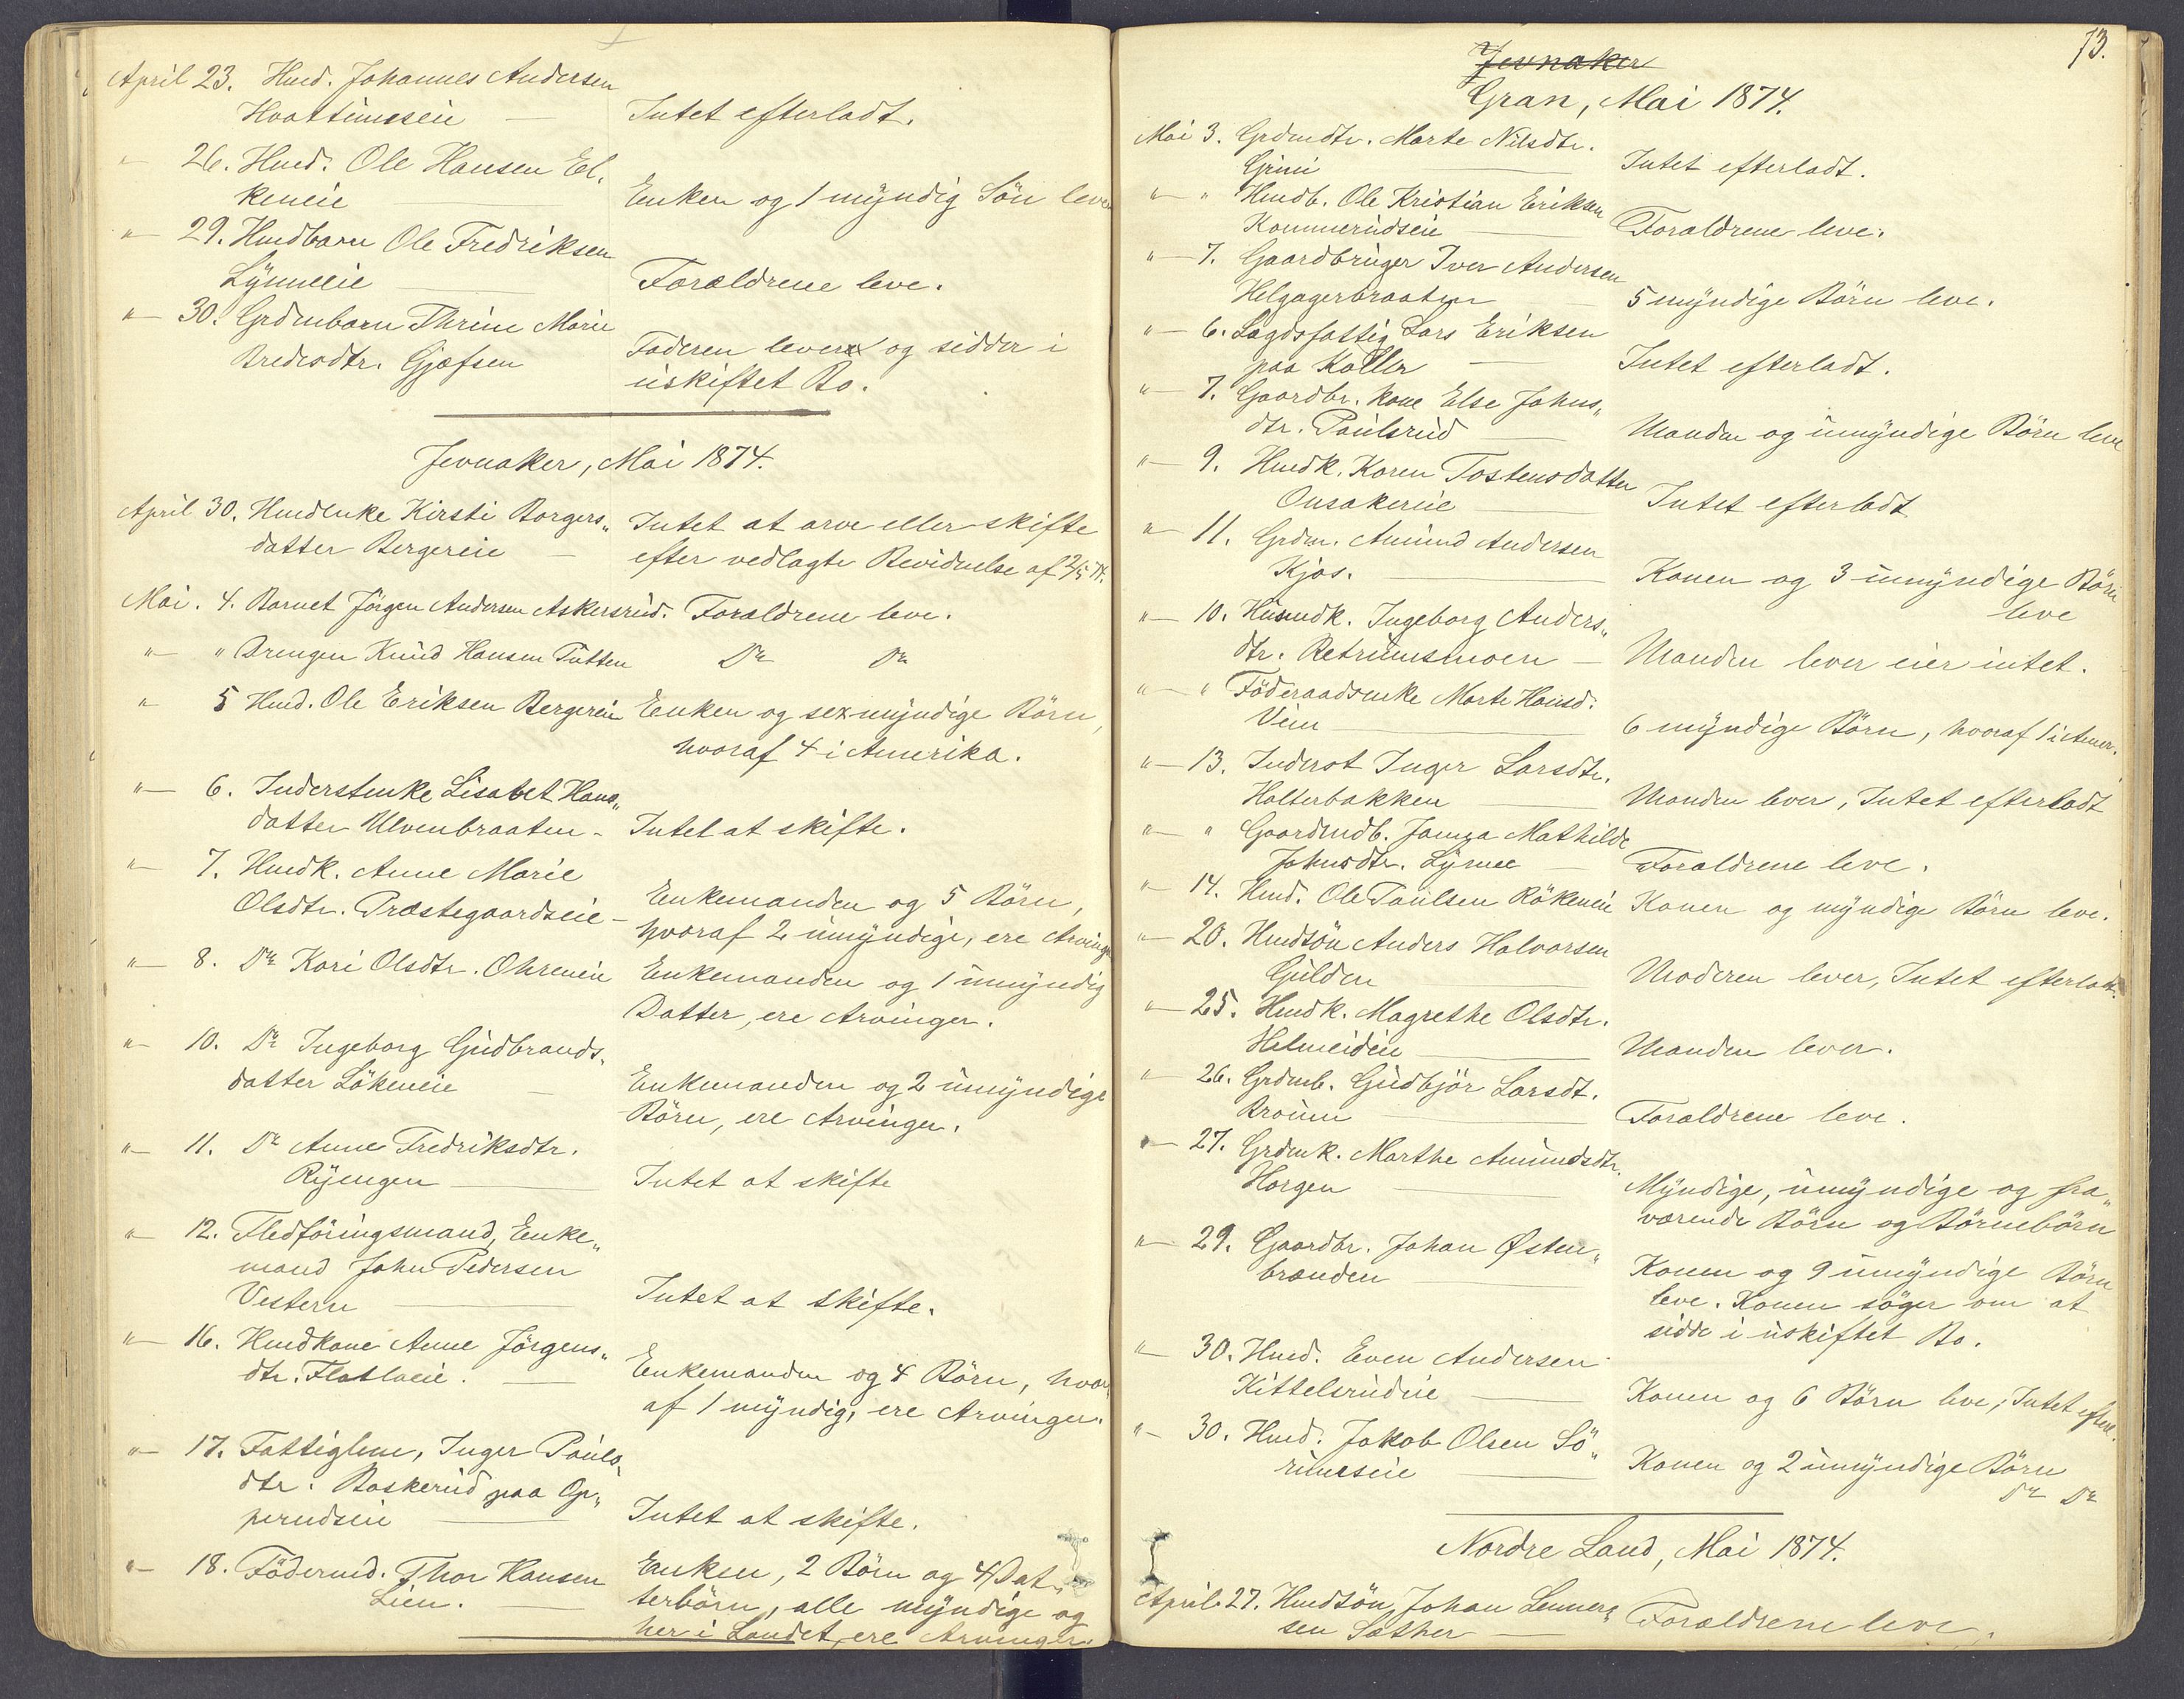 April 23. Hmd. Johannes Andersen
Hvattumseie — Intet efterladt.
"— 26. Hmd. Ole Hansen El,
keneie Enken og 1 myndig Sön lever
"— 29. Hmdbarn Ole Fredriksen
Lynneeie — Forældrene leve.
"— 30. Grdmbarn Thrine Marie
Bredesdtr. Gjefsen Faderen lever og sidder i
uskiftet Bo.
Jevnaker, Mai 1874.
April 30. Hmdenke Kirsti Borgers„ Intet at arve eller skifte
datter Bergereie — efter vedlagte Bevidnelse af 2/5 74.
Mai. 4. Barnet Jörgen Andersen Askersrud. Forældrene leve.
"— " Drengen Knud Hansen Tutten Do Do
"— 5 Hmd. Ole Eriksen Bergereie Enken og sex myndige Börn,
hvoraf 4 i Amerika.
"— 6. Inderstenke Lisabet Hans„
datter Ulvenbraaten – Intet at skifte.
"— 7. Hmdk. Anne Marie
Olsdtr. Præstegaardseie – Enkemanden og 5 Börn,
hvoraf 2 umyndige, ere Arvinger
"— 8. Do Kari Olsdtr. Ohreneie Enkemanden og 1 umyndig
Datter, ere Arvinger.
"— 10. Do Ingeborg Gudbrands„
datter Lökeneie — Enkemanden og 2 umyndige
Börn, ere Arvinger.
"— 11. Do Anne Fredriksdtr.
Ryengen — Intet at skifte
"— 12. Fledföringsmand, Enke„
mand John Pedersen
Vestern — Intet at skifte.
"— 16. Hmdkone Anne Jörgens„
dtr. Flatlaeie. — Enkemanden og 4 Börn, hvor
af 1 myndig, ere Arvinger.
"— 17. Fattiglem, Inger Pauls„
dtr. Baskerud paa Op„
perudseie — Intet at skifte.
"— 18. Födermd. Thor Hansen Enken, 2 Börn og 4 Dat„
Lien. — terbörn, alle myndige og
her i Landet, ere Arvinger.
73.
Jevnaker
Gran, Mai 1874.
Mai 3. Grdmdtr. Marte Nilsdtr.
Grini — Intet efterladt.
"— " Hmdb. Ole Kristian Eriksen
Kommerudseie — Forældrene leve.
"— 7. Gaardbruger Iver Andersen
Helgagerbraaten — 5 myndige Börn leve.
"— 6. Lægdsfattig Lars Eriksen
paa Koller — Intet efterladt.
"— 7. Gaardbr. kone Else Johns„
dtr. Paulsrud — Manden og umyndige Börn leve
"— 9. Hmdk. Karen Tostensdatter
Onsakereie — Intet efterladt
"— 11. Grdm. Amund Andersen
Kjos. — Konen og 3 umyndige Börn
leve
"— 10. Husmdk. Ingeborg Anders„
dtr. Retrumsmoen — Manden lever eier intet.
"— " Föderaadsenke Marte Hansd.
Vien — 6 myndige Börn, hvoraf 1 i Amer.
"— 13. Inderst Inger Larsdtr.
Holterbakken — Manden lever, Intet efterladt
"— " Gaardmdb. Janna Mathilde
Johnsdtr. Lynne — Forældrene leve.
"— 14. Hmd. Ole Paulsen Rökeneie Konen og myndige Börn leve.
"— 20. Hmdsön Anders Halvorsen
Gulden — Moderen lever, Intet efterladt.
"— 25. Hmdk. Magrethe Olsdtr.
Helmeideie — Manden lever.
"— 26. Grdmb. Gudbjör Larsdt.
Braunn — Forældrene leve.
"— 27. Grdmk. Marthe Amundsdtr.
Horgen — Myndige, umyndige og fra„
værende Börn og Börnebörn
"— 29. Gaardbr. Johan Østen„
brænden — Konen og 9 umyndige Börn
leve. Konen söger om at
sidde i uskiftet Bo.
"— 30. Hmd. Even Andersen
Kittelsrudeie — Konen og 6 Börn leve, Intet efterl.
"— 30. Hmd. Jakob Olsen Sö„
rumseie — Konen og 2 umyndige Börn
Do Do
Nordre Land, Mai 1874.
April 27. Hmdsön Johan Lenner„ Forældrene leve.
sen Sæther —